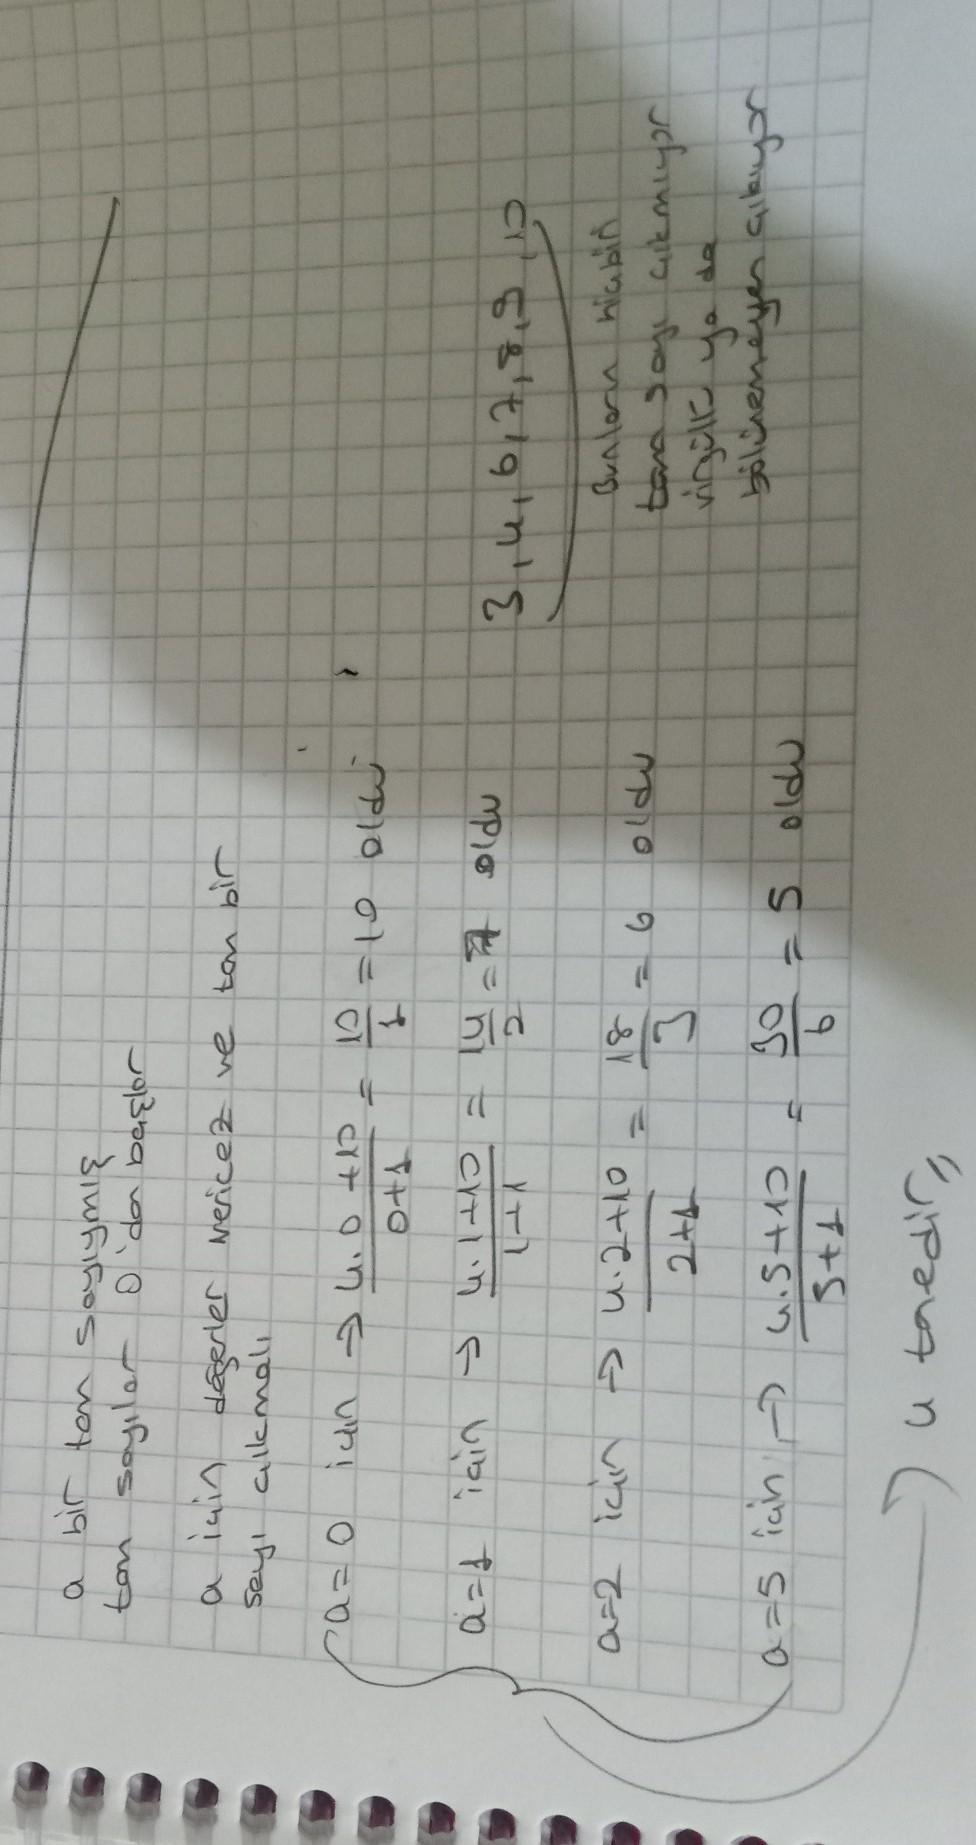 a bir tam sayıymış
tam sayılar 0'dan başlar
a için değerler vericez ve tam bir
sayı çıkmalı
a=0 için → 4.0+10 / 0+1 = 10/1 = 10 oldu
a=1 için → 4.1+10 / 1+1 = 14/2 = 7 oldu
a=2 için → 4.2+10 / 2+1 = 18/3 = 6 oldu
a=5 için → 4.5+10 / 5+1 = 30/6 = 5 oldu
4 tanedir
3,4,6,7,8,9,10
Bunların hiçbiri
tam sayı çıkmıyor
virgüllü ya da
bölünemeyen çıkıyor